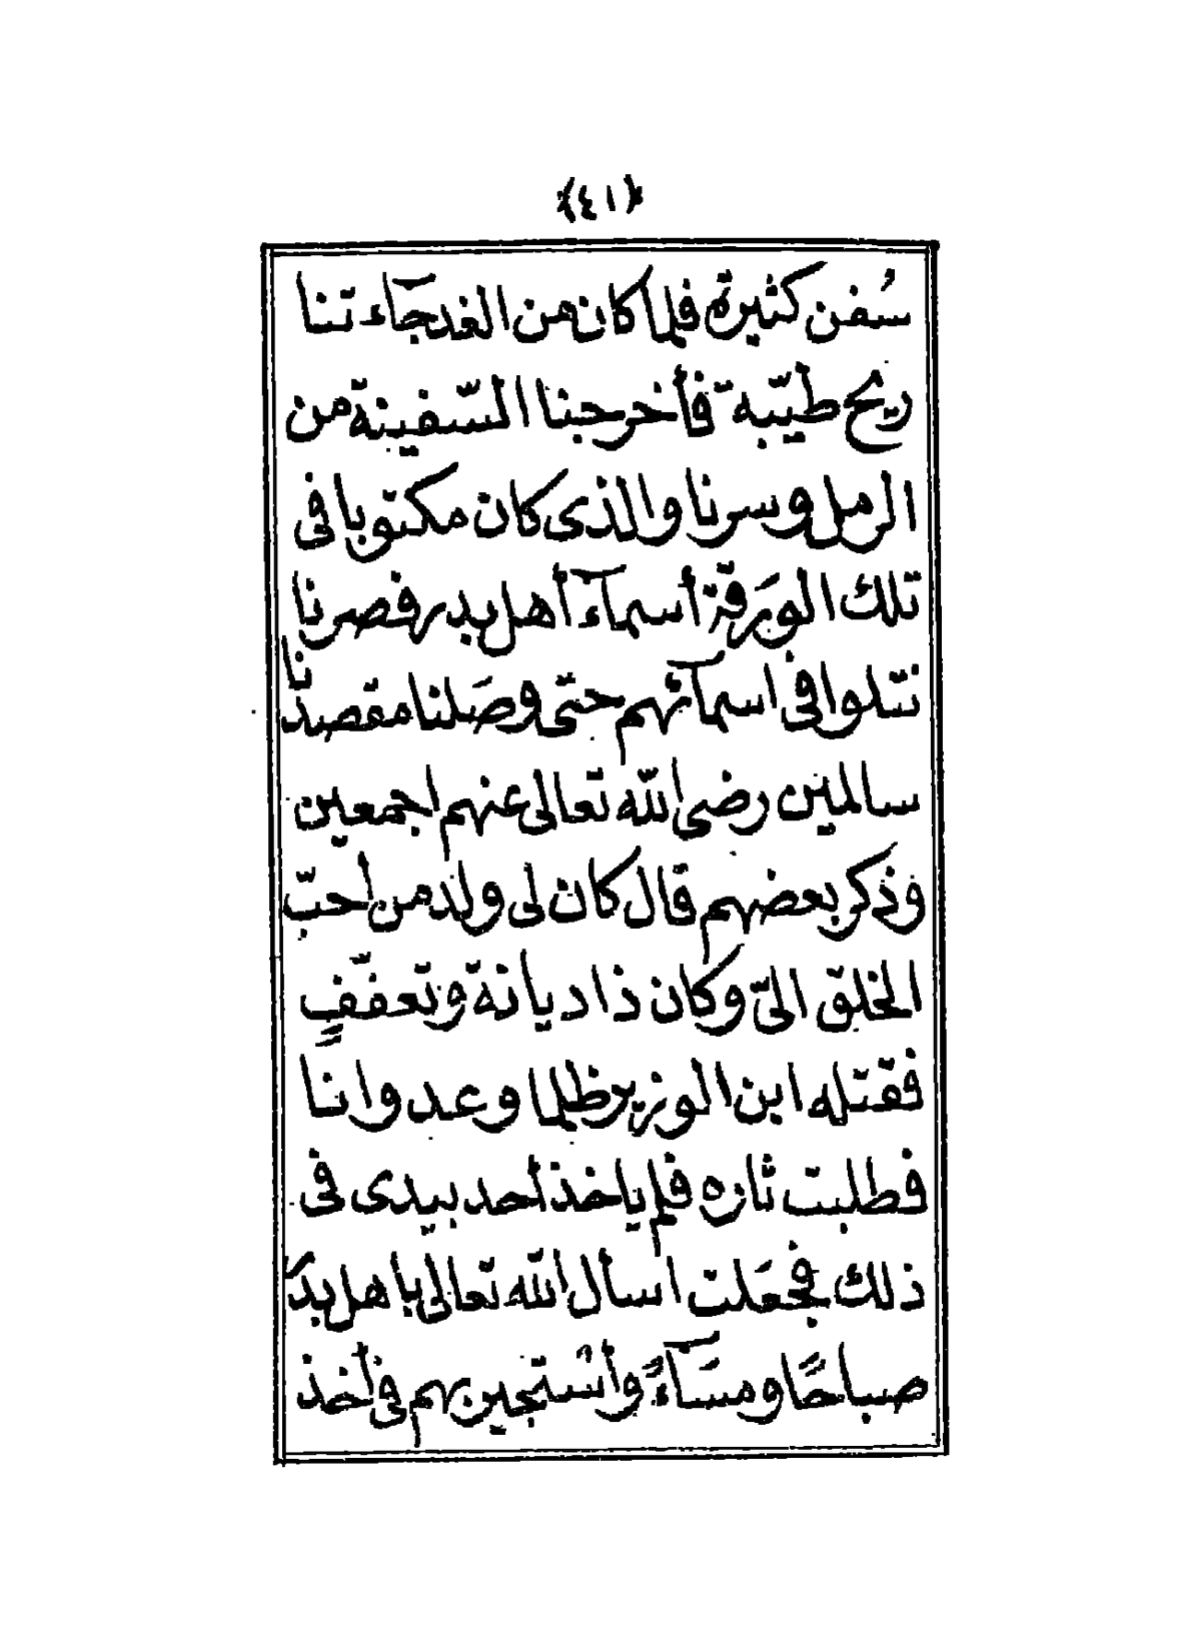 ﴿٤١﴾
سُفن كثيرة فلما كان من الغد جآء تنا
ريح طيّبة فأخرجنا السّفينة من
الرمل وسرنا والذى كان مكتوبا فى
تلك الورَقة أسمآء أهل بدر فصرنا
نتلوا فى اسمآئهم حتى وصَلنا مقصدنا
سالمين رضى الله تعالى عنهم اجمعين
وذكر بعضهم قال كان لى ولد من أحبّ
الخلق الىّ وكان ذا ديانة وتعفّفٍ
فقتله ابن الوزير ظلما وعدوانا
فطلبت ثاره فلم ياخذ أحد بيدى فى
ذلك فجعَلت اسأل الله تعالى باهل بدر
صباحًا ومسَآءً وأسْتجير بهم فى أخذ